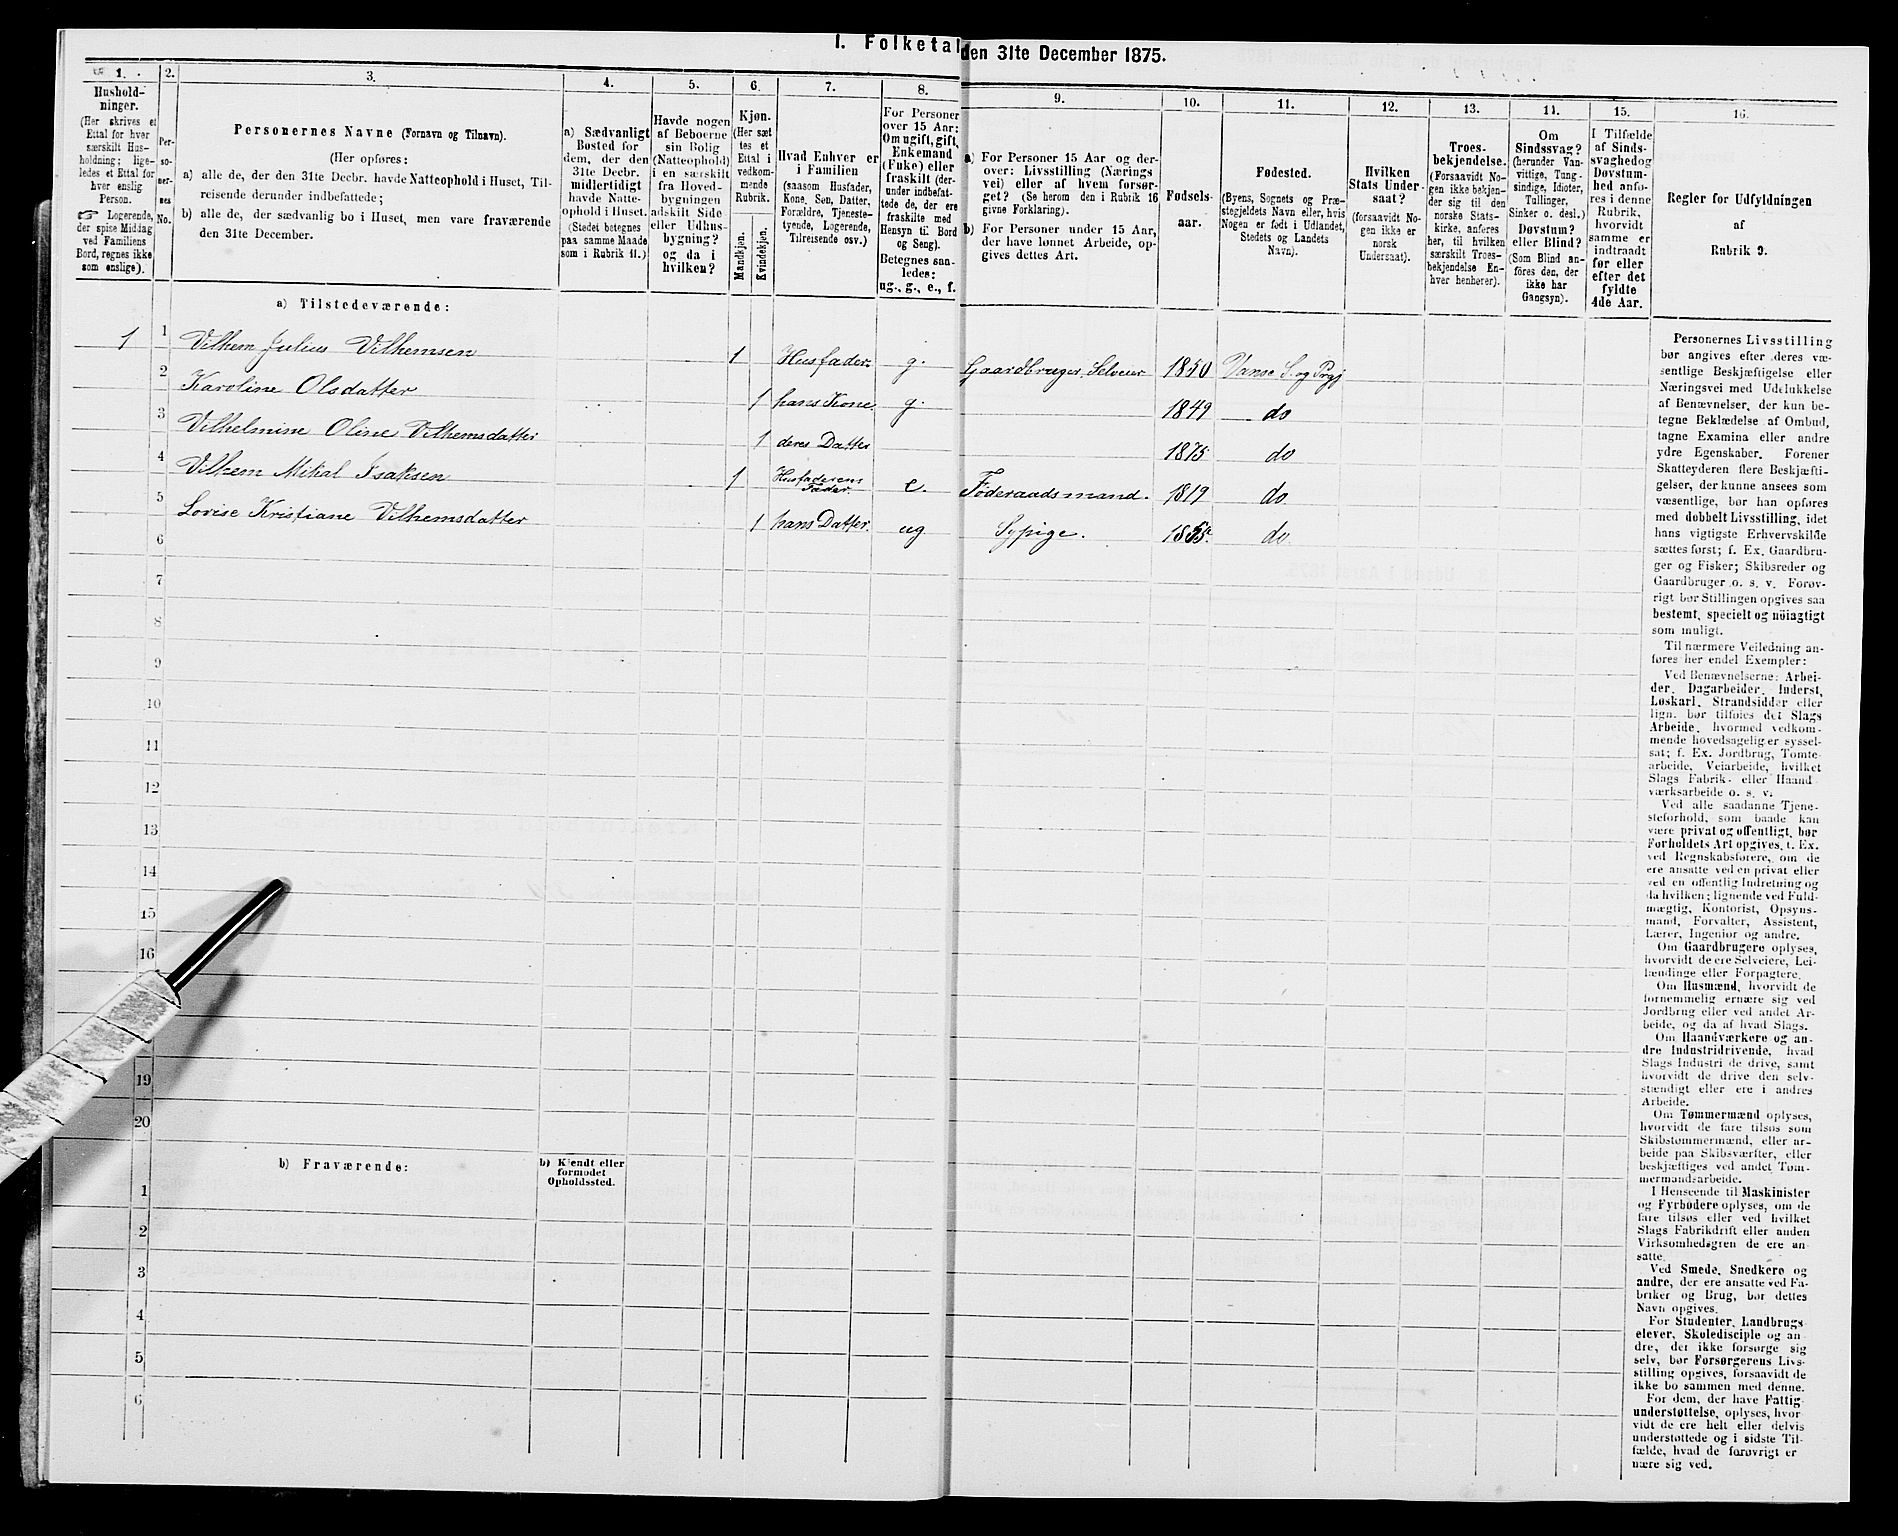 I. Folketal den 31te December 1875.
1.
Hushold-
ninger.
(Her skrives et
Ettal for hver
særskilt Hus-
holdning; lige-
ledes et Ettal for
hver enslig
Person.
☞ Logerende,
der spise Middag
ved Familiens
Bord, regnes ikke
som enslige).
2.
Per-
so-
ner-
nes
No.
3.
Personernes Navne (Fornavn og Tilnavn).
(Her opføres:
a) alle de, der den 31te Decbr. havde Natteophold i Huset, Til-
reisende derunder indbefattede;
b) alle de, der sædvanlig bo i Huset, men vare fraværende
den 31te December.
4.
a) Sædvanligt
Bosted for
dem, der den
31te Decbr.
midlertidigt
havde Natte-
ophold i Huset.
(Stedet betegnes
paa samme Maade
som i Rubrik 11.)
5.
Havde nogen
af Beboerne
sin Bolig
(Natteophold)
i en særskilt
fra Hoved-
bygningen
adskilt Side
eller Udhus-
bygning?
og da i
hvilken?
6.
Kjøn.
(Her sæt
tes et
Ettal i
vedkom-
mende
Rubrik.
Mandkjøn.
Kvindekjøn.
7.
Hvad Enhver er
i Familien
(saasom Husfader,
Kone, Søn, Datter,
Forældre, Tjeneste-
tyende, Logerende,
Tilreisende osv.)
8.
For Personer
over 15 Aar:
Om ugift, gift,
Enkemand
(Enke) eller
fraskilt (der-
under indbefat-
tede de, der ere
fraskilte med
Hensyn til Bord
og Seng).
Betegnes saa-
ledes:
ug., g., e., f.
9.
a) For Personer 15 Aar og der-
over: Livsstilling (Nærings
vei) eller af hvem forsør-
get? (Se herom den i Rubrik 16
givne Forklaring).
b) For Personer under 15 Aar,
der have lønnet Arbeide, op-
gives dettes Art.
10.
Fødsels-
aar.
11.
Fødested.
(Byens, Sognets og Præ-
stegjeldets Navn eller, hvis
Nogen er født i Udlandet,
Stedets og Landets
Navn).
12.
Hvilken
Stats Under-
saat?
(forsaavidt No-
gen ikke er
norsk
Undersaat).
13.
Troes-
bekjendelse.
(Forsaavidt No-
gen ikke bekjen-
der sig til den
norske Stats-
kirke, anføres
her, til hvilken
særskilt Troes-
bekjendelse En-
hver henhører).
14.
Om
Sindssvag?
(herunder Van-
vittige, Tung-
sindige, Idioter,
Tullinger,
Sinker o. desl.)
Døvstum?
eller Blind?
(Som Blind an-
føres den, der
ikke har
Gangsyn).
15.
I Tilfælde
af Sinds-
svaghedog
Døvstum-
hed anfø-
res i denne
Rubrik,
hvorvidt
samme er
indtraadt
før eller
efter det
fyldte
4de Aar.
16.
Regler for Udfyldningen
af
Rubrik 9.
a) Tilstedeværende:
1 1 Vilhem Julius Vilhemsen 1 Husfader g. Gaardbruger, Selveier 1850 Vanse S. og Prgj
2 Karoline Olsdatter 1 hans Kone. g. 1849 do
3 Vilhelmine Oline Vilhemsdatter 1 deres Datter 1875 do
4 Vilhem Mikal Isaksen 1 Husfaderens Fader. e. Føderaadsmand. 1819 do
5 Lovise Kristiane Vilhemsdatter 1 hans Datter. ug Sypige. 1855. do.
6
7
8
9
10
11
12
13
14
15
16
19
20
b) Fraværende:
b) Kjendt eller
formodet
Opholdssted.
1
2
3
4
5
6
Personernes Livsstilling
bør angives efter deres væ-
sentlige Beskjæftigelse eller
Næringsvei med Udelukkelse
af Benævnelser, der kun be-
tegne Beklædelse af Ombud,
tagne Examina eller andre
ydre Egenskaber. Forener
Skatteyderen flere Beskjæfti-
gelser, der kunne ansees som
væsentlige, bør han opføres
med dobbelt Livsstilling, idet
hans vigtigste Erhvervskilde
sættes først; f. Ex. Gaardbru-
ger og Fisker; Skibsreder og
Gaardbruger o. s. v. Forøv-
rigt bør Stillingen opgives saa
bestemt, specielt og nøiagtigt
som muligt.
Til nærmere Veiledning an-
føres her endel Exempler:
Ved Benævnelserne: Arbei-
der, Dagarbeider, Inderst,
Løskarl, Strandsidder eller
lign. bør tilføies det Slags
Arbeide, hvormed vedkom-
mende hovedsagelig er syssel-
sat; f. Ex. Jordbrug, Tomte-
arbeide, Veiarbeide, hvilket
Slags Fabrik- eller Haand
værksarbeide o. s. v.
Ved alle saadanne Tjene-
steforhold, som baade kan
være privat og offentligt, bør
Forholdets Art opgives, f. Ex.
ved Regnskabsførere, om de
ere ansatte ved en privat eller
ved en offentlig Indretning og
da hvilken; lignende ved Fuld-
mægtig, Kontorist, Opsyns-
mand, Forvalter, Assistent,
Lærer, Ingeniør og andre.
Om Gaardbrugere oplyses,
hvorvidt de ere Selveiere, Lei-
lændinge eller Forpagtere.
Om Husmænd, hvorvidt de
fornemmelig ernære sig ved
Jordbrug eller ved andet Ar-
beide, og da af hvad Slags.
Om Haandværkere og an-
dre Industridrivende, hvad
Slags Industri de drive, samt
hvorvidt de drive den selv-
stændigt eller ere i andres
Arbeide.
Om Tømmermænd oplyses,
hvorvidt de fare tilsøs som
Skibstømmermænd, eller ar-
beide paa Skibsværfter, eller
beskjæftiges ved andet Tøm-
mermandsarbeide.
I Henseende til Maskinister
og Fyrbødere oplyses, om de
fare tilsøs eller ved hvilket
Slags Fabrikdrift eller anden
Virksomhedsgren de ere an-
satte.
Ved Smede, Snedkere og
andre, der ere ansatte ved Fa-
briker og Brug, bør dettes
Navn opgives.
For Studenter, Landbrugs
elever, Skoledisciple og an
dre, der ikke forsørge sig
selv, bør Forsørgerens Livs-
stilling opgives, forsaavidt de
ikke bo sammen med denne.
For dem, der have Fattig
understøttelse, oplyses, hvor
vidt de ere helt eller delvis
understøttede og i sidste Til-
fælde, hvad de forøvrigt er
nære sig ved.